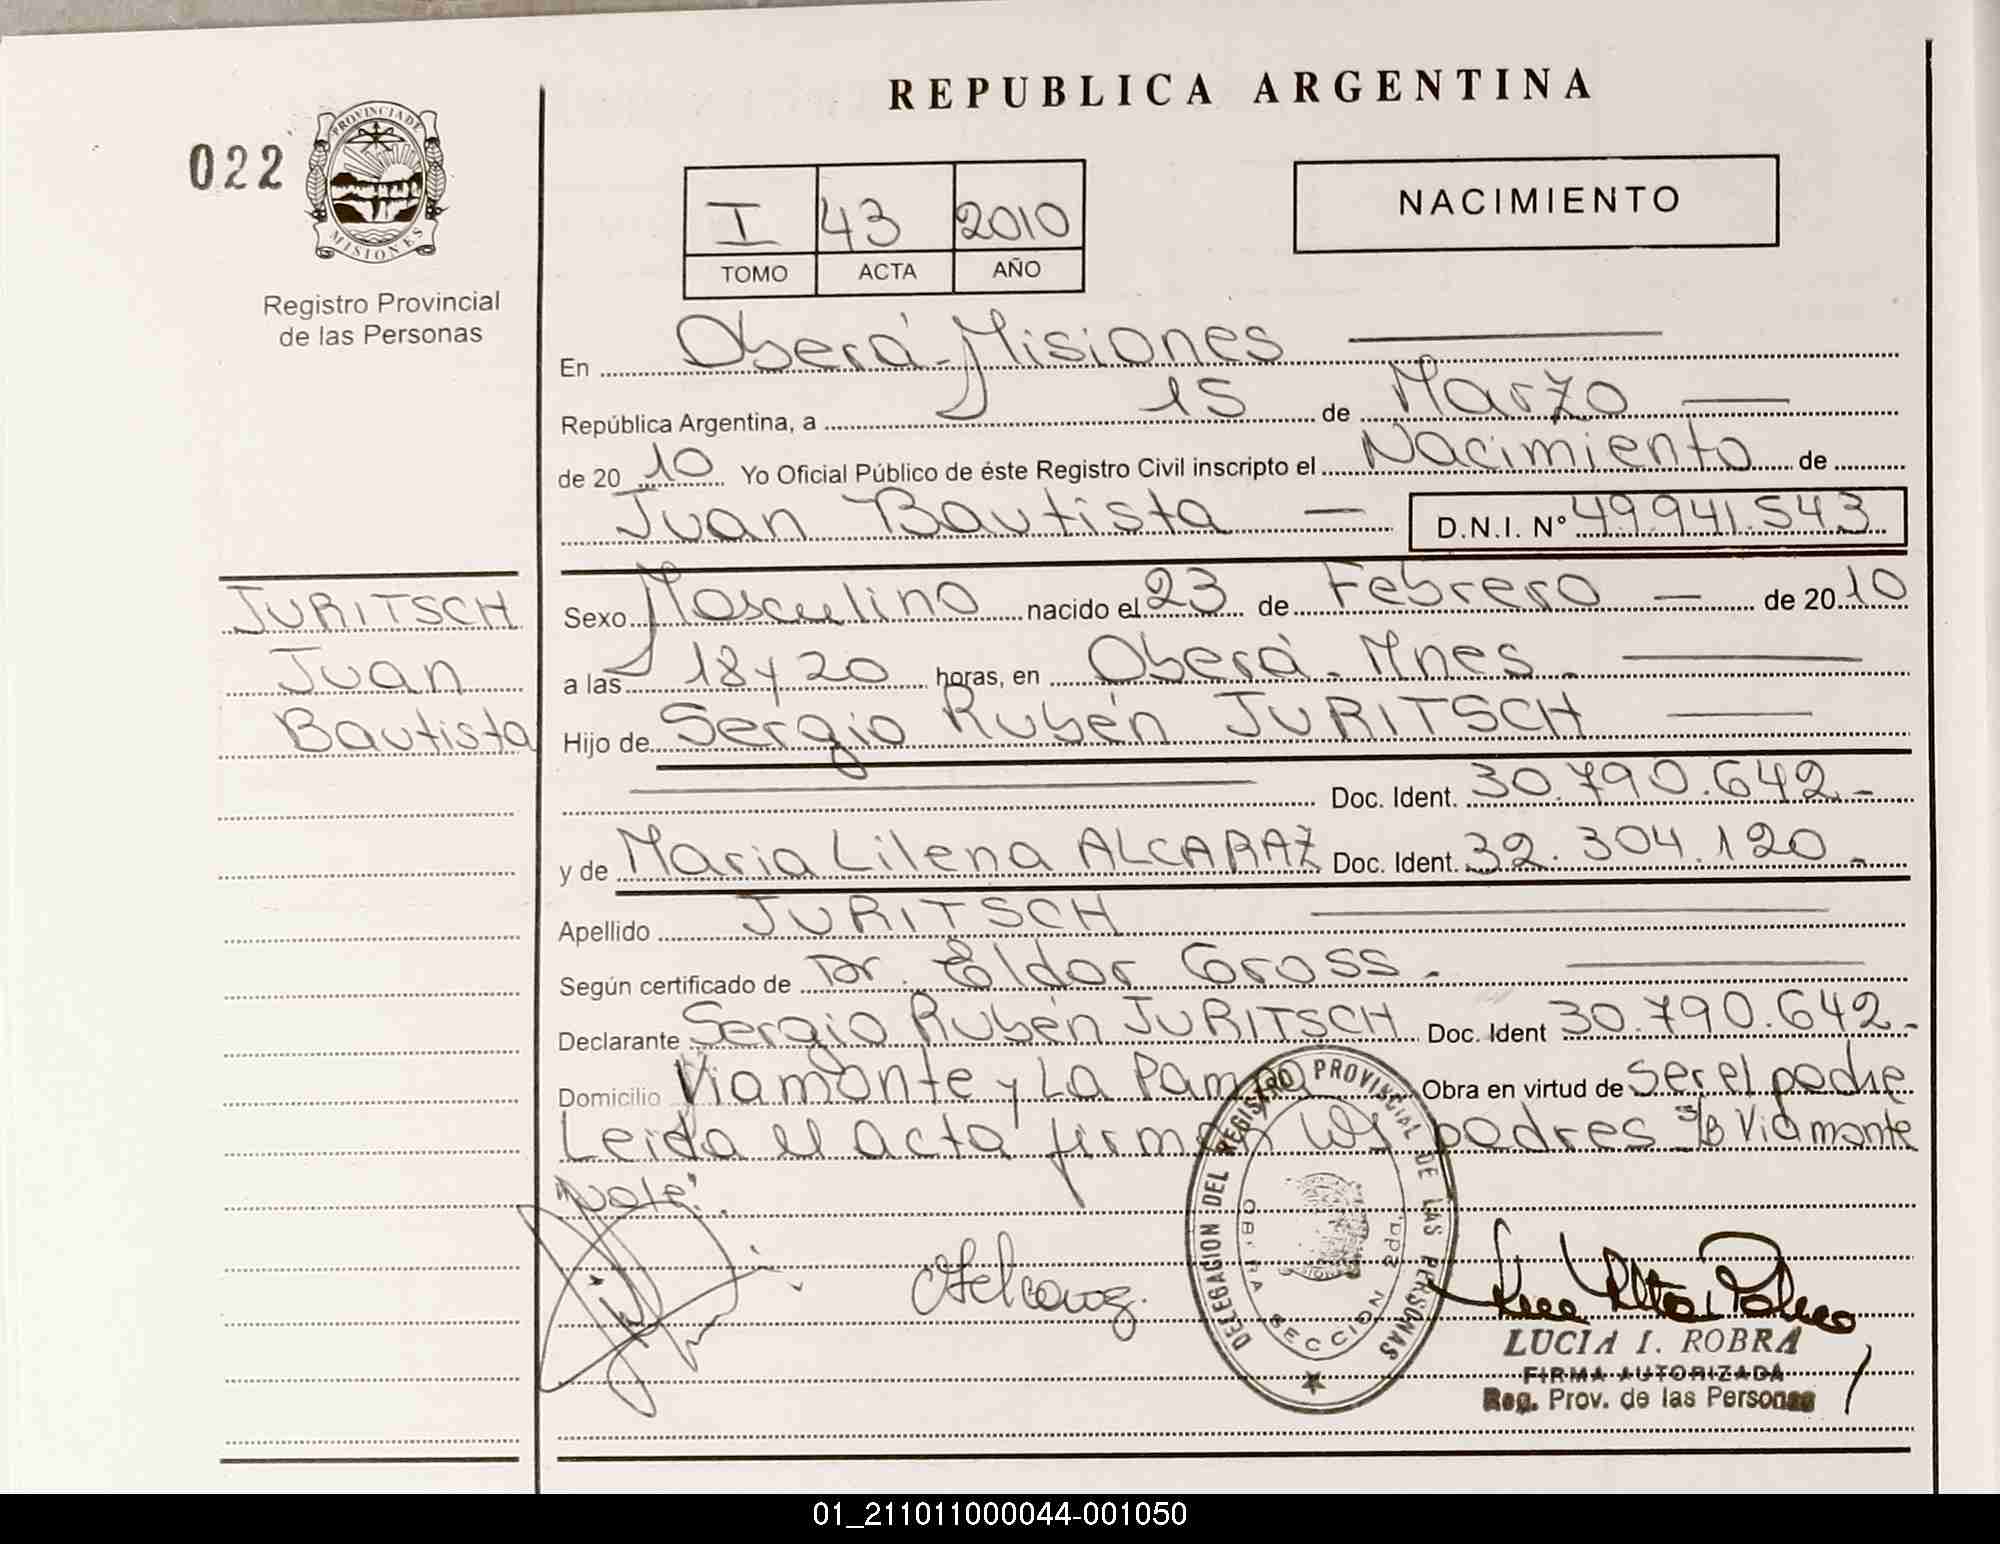 REPUBLICA ARGENTINA
022
PROVINCIA DE MISIONES
Registro Provincial
de las Personas
NACIMIENTO
I 43 2010
TOMO ACTA AÑO
En Oberá - Misiones
República Argentina, a 15 de Marzo
de 20 10 Yo Oficial Público de éste Registro Civil inscripto el Nacimiento de
Juan Bautista D.N.I. Nº 49.941.543
JURITSCH
Juan
Bautista
Sexo Masculino nacido el 23 de Febrero de 2010
a las 18 y 20 horas, en Oberá. Mnes.
Hijo de Sergio Rubén JURITSCH
Doc. Ident. 30.790.642.-
y de Maria Lilena ALCARAZ Doc. Ident. 32.304.120.-
Apellido JURITSCH
Según certificado de Dr. Eldor Gross.
Declarante Sergio Rubén JURITSCH Doc. Ident 30.790.642.-
Domicilio Viamonte y La Pampa Obra en virtud de ser el padre
Leida el acta firman los padres s/b Viamonte
Vale.
DELEGACION DEL REGISTRO PROVINCIAL DE LAS PERSONAS
OBERA SECCION 2da.
LUCIA I. ROBRA
FIRMA AUTORIZADA
Reg. Prov. de las Personas
01_211011000044-001050